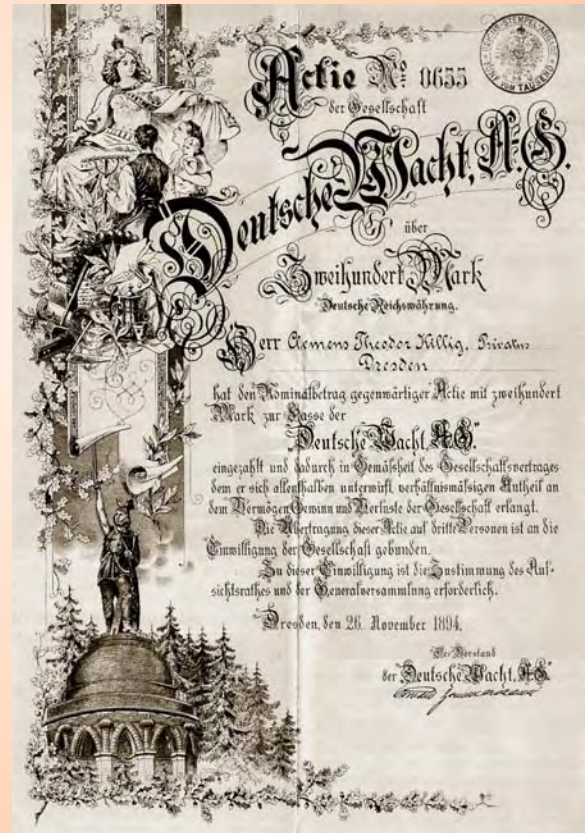 Actie No 0655
der Gesellschaft
Deutsche Wacht, A.G.
über
Zweihundert Mark
Deutsche Reichswährung.
Herr Clemens Theodor Killig, Privatus
Dresden
hat den Nominalbetrag gegenwärtiger Actie mit zweihundert
Mark zur Casse der
"Deutsche Wacht A.G."
eingezahlt und dadurch in Gemäßheit des Gesellschaftsvertrages
dem er sich allenthalben unterwirft, verhältnismäsigen Antheil an
dem Vermögen Gewinn und Verluste der Gesellschaft erlangt.
Die Übertragung dieser Actie auf dritte Personen ist an die
Einwilligung der Gesellschaft gebunden.
Zu dieser Einwilligung ist die Zustimmung des Auf-
sichtsrathes und der Generalversammlung erforderlich.
Dresden, den 26. November 1894.
Der Vorstand
der "Deutsche Wacht, A.G."
VOM TAUSEND